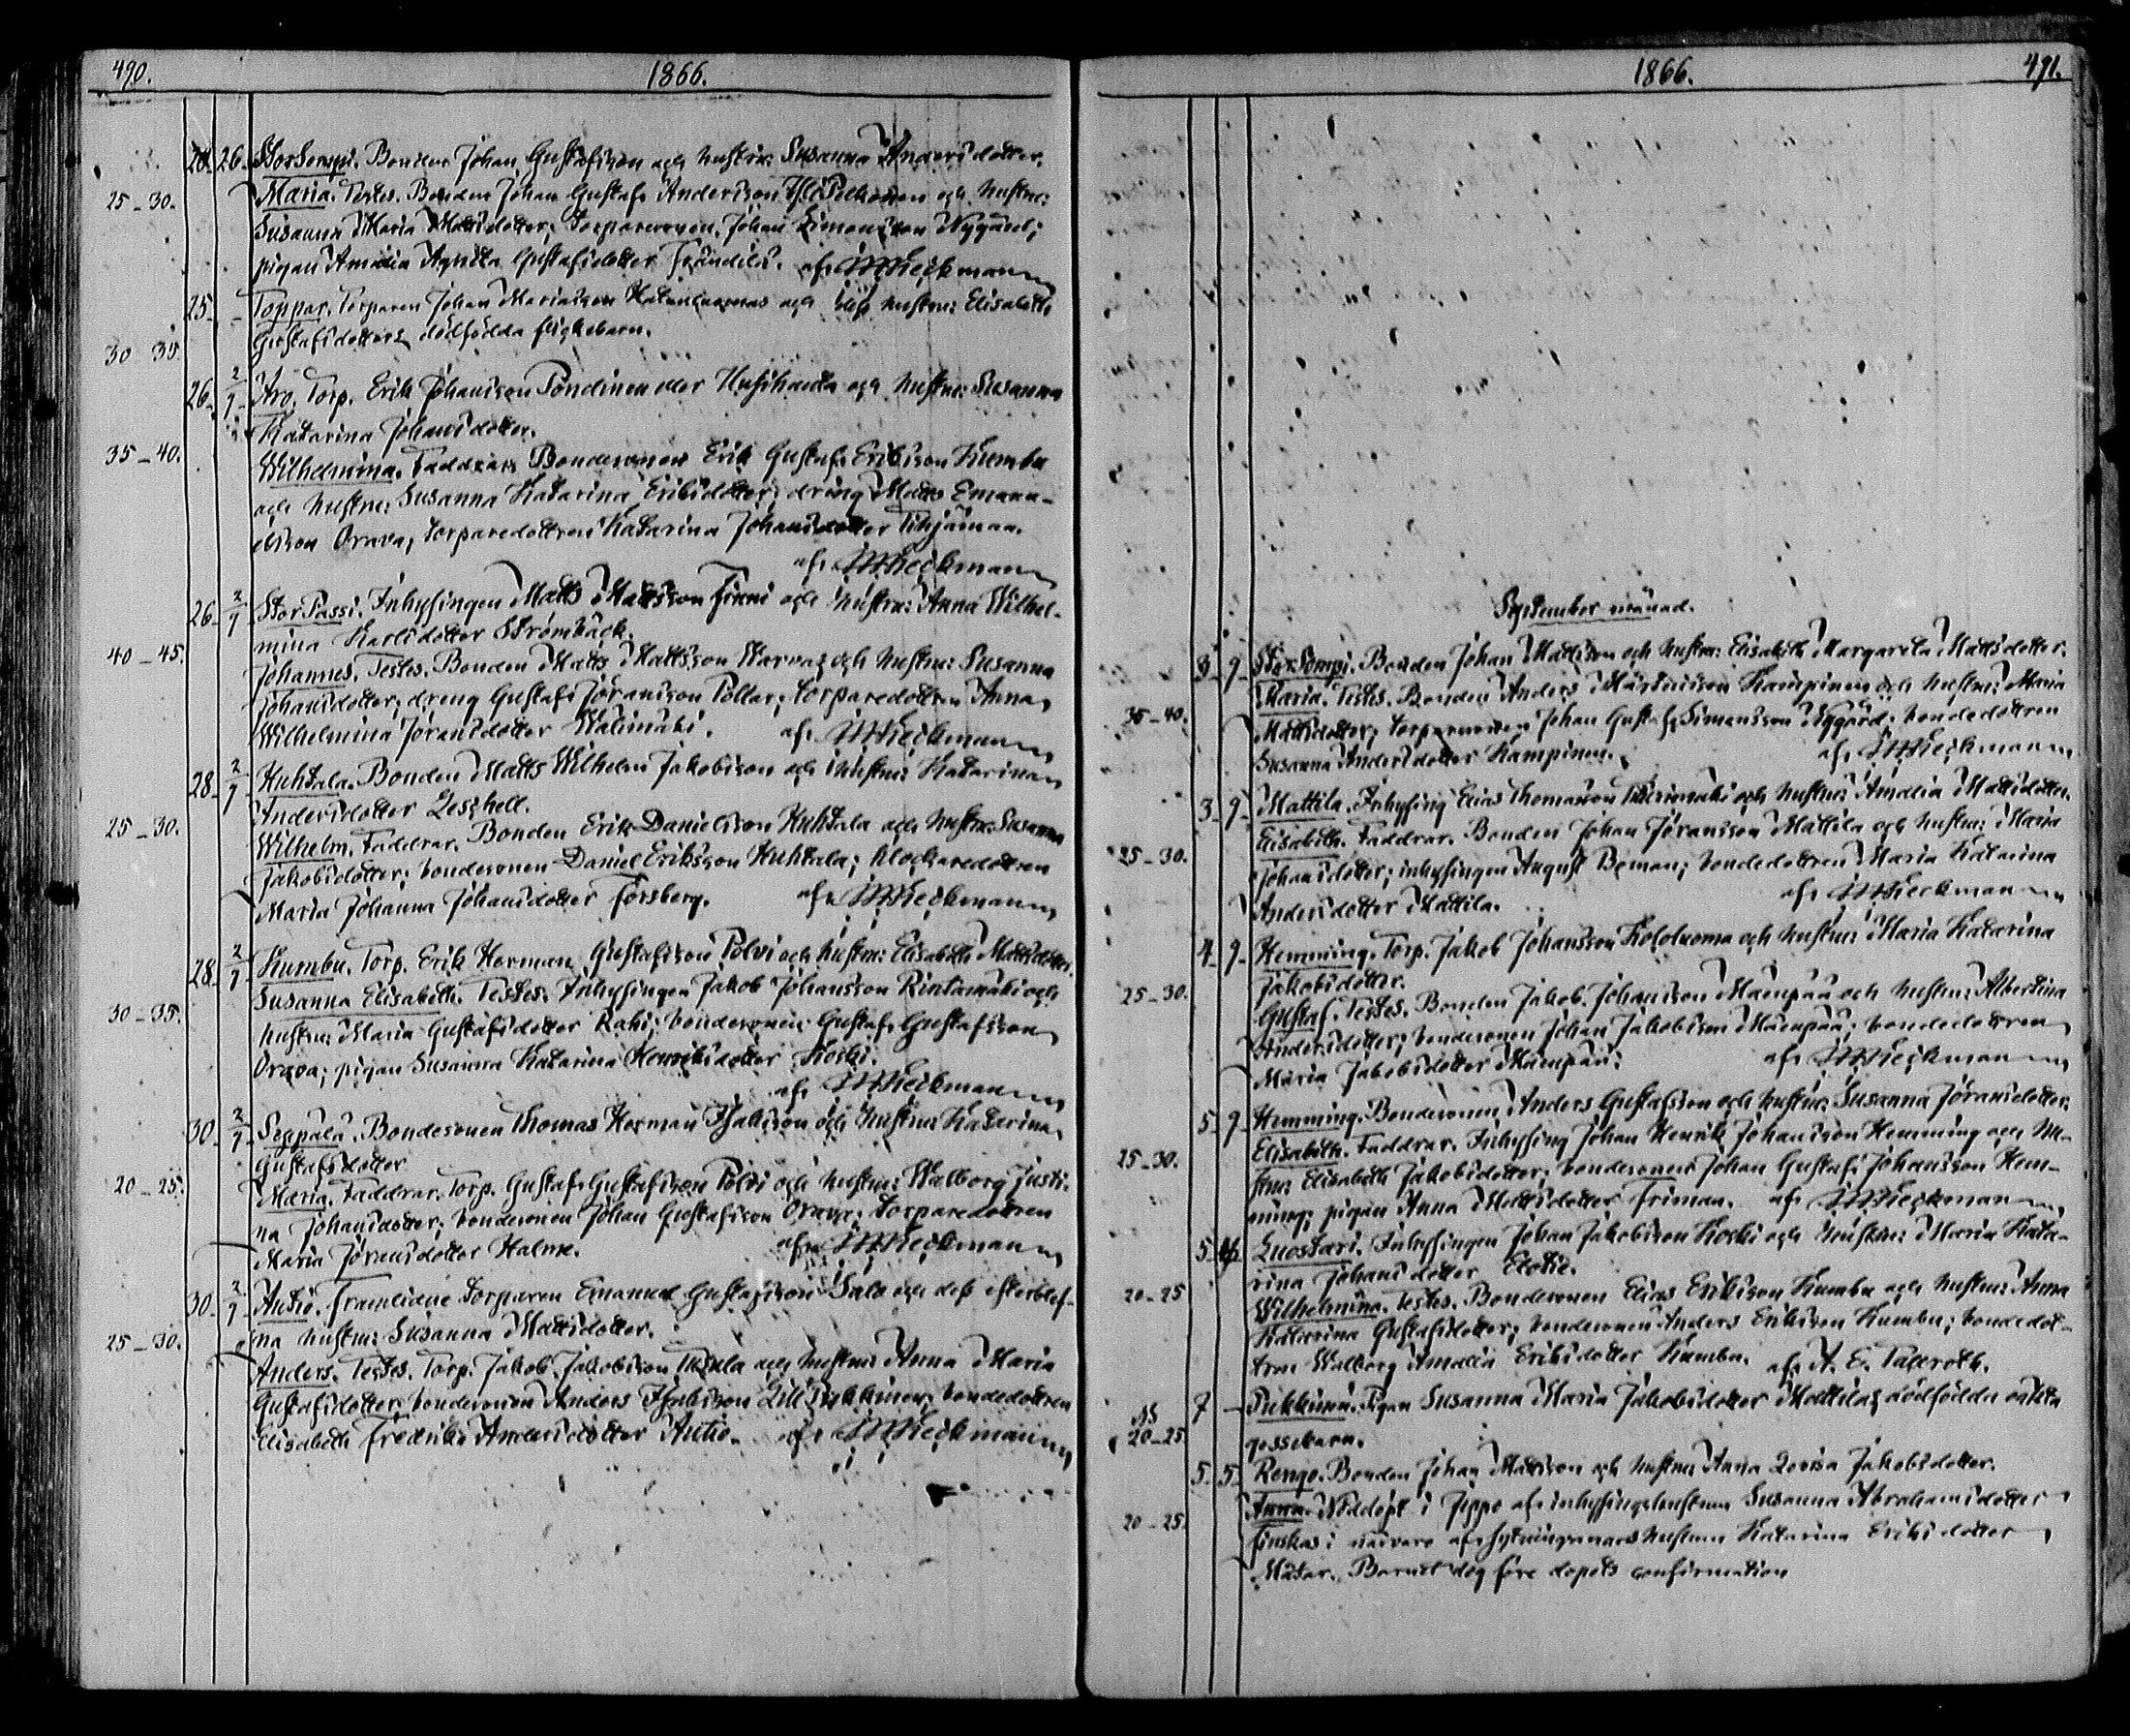 490. 1866.
26. StorSompi. Bonden Johan Gustafsson och hustru: Susanna Andersdotter.
25-30. Maria. Testes. Bonden Johan Gustaf Andersson och hustru:
Susanna Maria Mattsdotter; torparesonen Johan Simonsson Nygård;
pigan Amalia Gustafsdotter af M Heikman
25. Toppar. Torparen Johan och dess hustru: Elisabeth
30 35. Gustafsdotters dödfödda flickebarn.
26. 2/9 Aro. Torp. Erik Johansson eller och hustru: Susanna
Katarina Johansdotter.
35-40. Wilhelmina. Faddrar. Bondesonen Erik Gustaf Eriksson Kumbu
och hustru: Susanna Katarina Eriksdotter; dräng Matts Emanu-
elsson Orava; torparedottren Katarina Johansdotter
af M Heikman
26. 2/9 StorPassi. Inhysingen Matts Mattsson Finni och hustru: Anna Wilhel-
mina Karlsdotter Strömbäck.
40-45. Johannes. Testes. Bonden Matts Mattsson och hustru: Susanna
Johansdotter; dräng Gustaf Göransson; torparedottren Anna
Wilhelmina Göransdotter Wälimäki. af M Heikman
28. 2/9 Huhtala. Bonden Matts Wilhelm Jakobsson och hustru: Katarina
Andersdotter
25-30. Wilhelm. Faddrar. Bonden Erik Danielsson Huhtala och hustru: Susanna
Jakobsdotter; bondesonen Daniel Eriksson Huhtala; klockaredottren
Maria Johanna Johansdotter Forsberg. af M Heikman
28. 2/9 Kumbu. Torp. Erik Herman Gustafsson Polvi och hustru: Elisabeth Mattsdotter.
Susanna Elisabeth. Testes. Inhysingen Jakob Johansson Rintamäki och
30-35. hustru: Maria Gustafsdotter; bondesonen Gustaf Gustafsson
Orava; pigan Susanna Katarina Henriksdotter Koski.
af M Heikman
30. 2/9 Seppälä. Bondesonen Thomas Herman Isaksson och hustru: Katarina
Gustafsdotter
20-25. Maria. Faddrar. Torp. Gustaf Gustafsson Polvi och hustru: Walborg Justi-
na Johansdotter; bondesonen Johan Gustafsson Orava; torparedottren
Maria Göransdotter Halme. af M Heikman
30. 2/9 Autio. Framlidne torparen Emanuel Gustafsson Salo och dess efterblef-
na hustru: Susanna Mattsdotter.
25-30. Anders. Testes. Torp. Jakob Jakobsson och hustru: Anna Maria
Gustafsdotter; bondesonen Anders Isaksson LillPukkinen; bondedottren
Elisabeth Fredrika Andersdotter Autio. af M Heikman
1866. 491.
September månad.
3. 9. StorSompi. Bonden Johan Mattsson och hustru: Elisabeth Margareta Mattsdotter.
Maria. Testes. Bonden Anders Kampinen och hustru: Maria
35-40. Mattsdotter; torparesonen Johan Gustaf Simonsson Nygård; bondedottren
Susanna Andersdotter Kampinen. af M Heikman
3. 9. Mattila. Inhysing Elias Thomasson och hustru: Amalia Mattsdotter.
Elisabeth. Faddrar. Bonden Johan Göransson Mattila och hustru: Maria
25-30. Johansdotter; inhysingen August; bondedottren Maria Katarina
Andersdotter Mattila. af M Heikman
4. 9. Hemming. Torp. Jakob Johansson och hustru: Maria Katarina
Jakobsdotter.
25-30. Gustaf. Testes. Bonden Jakob Johansson Mäenpää och hustru: Albertina
Andersdotter; bondesonen Johan Jakobsson Mäenpää; bondedottren
Maria Jakobsdotter Mäenpää. af M Heikman
5. 9. Hemming. Bondesonen Anders Gustafsson och hustru: Susanna Göransdotter.
25-30. Elisabeth. Faddrar. Inhysing Johan Henrik Johansson Hemming och hu-
stru: Elisabeth Jakobsdotter; bondesonen Johan Gustaf Johansson Hem-
ming; pigan Anna Mattsdotter Friman. af M Heikman
5. Luostari. Inhysingen Johan Jakobsson Koski och hustru: Maria Kata-
rina Johansdotter
20-25 Wilhelmina. Testes. Bondesonen Elias Eriksson Kumbu och hustru: Anna
Katarina Gustafsdotter; bondesonen Anders Eriksson Kumbu; bondedot-
tren Walborg Amalia Eriksdotter Kumbu. af A. E. Taxeroth.
7 - Pukkinen. Pigan Susanna Maria Jakobsdotter Mattilas dödfödda oäkta
20-25 gossebarn.
5. 5. Rengo. Bonden Johan Mattsson och hustru: Anna Lovisa Jakobsdotter.
20-25. Anna. Nöddöpt i Jeppo af inhysingshustrun Susanna Abrahamsdotter
i närvaro af hustrun Katarina Eriksdotter
Barnet dog före dopets confirmation